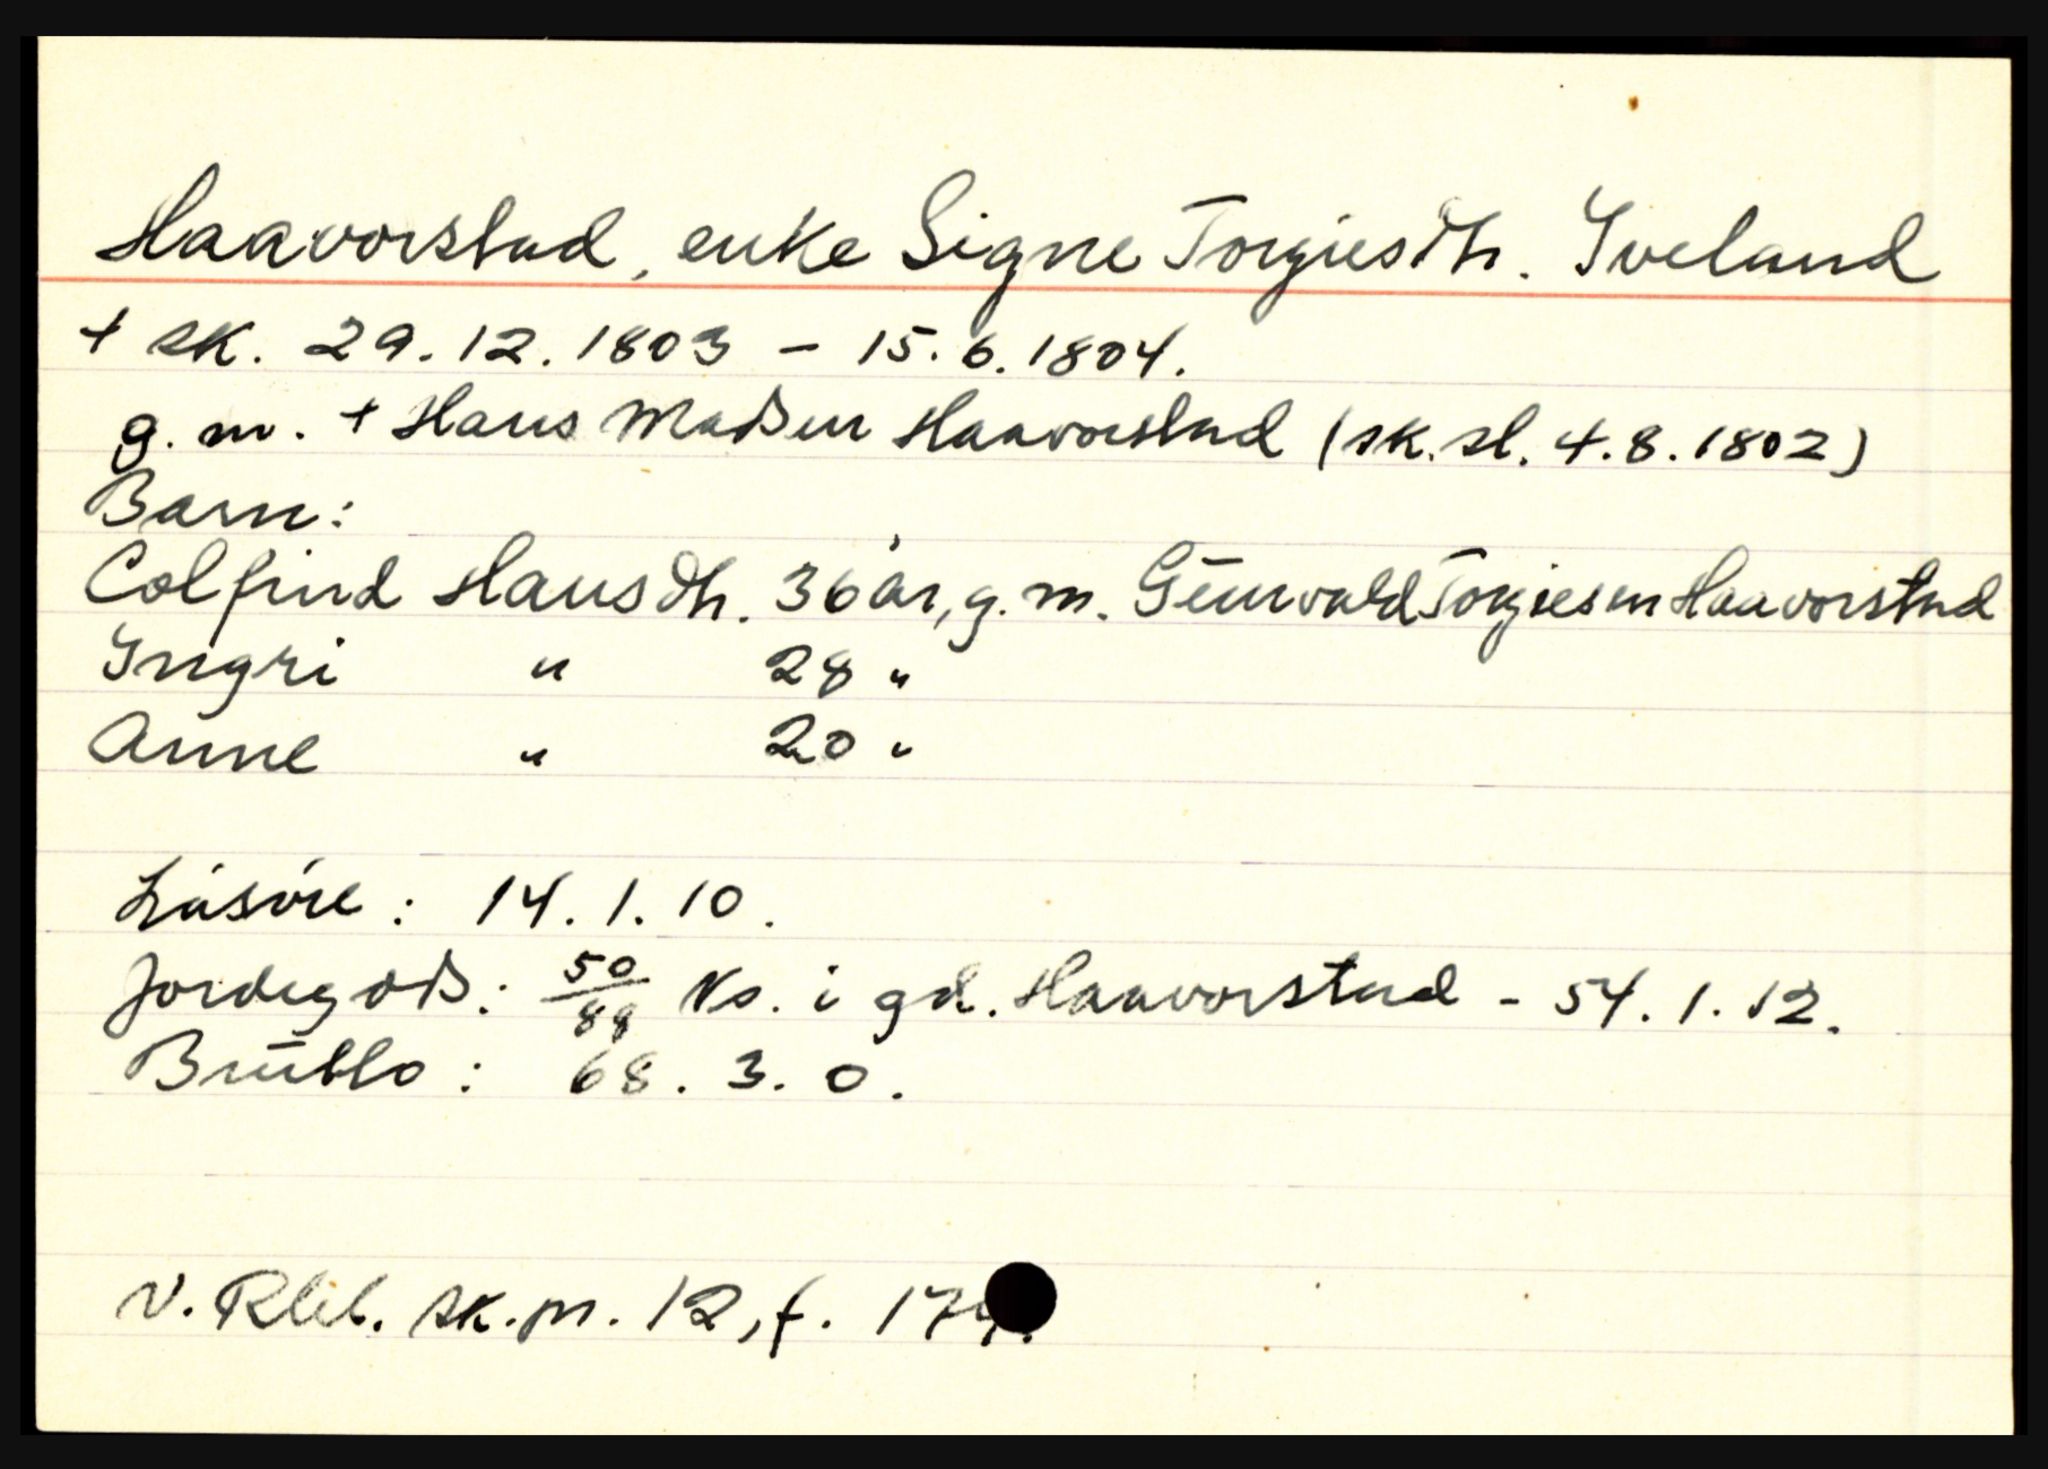 Haavorstad, enke Signe Torgiesdtr. Iveland
+ sk. 29.12.1803 - 15.6.1804.
g. m. + Hans Madsen Haavorstad (sk. sl. 4.8.1802)
Barn:
Colfind Hansdtr. 36 år, g. m. Gunvald Torgiesen Haavorstad
Ingri " 28 "
Anne " 20 "
Løsøre: 14.1.10.
Jordegods: 50/88 Ns. i gd. Haavorstad - 54.1.12.
Brutto: 68.3.0.
V. Rbl. sk.pr. 12, f. 174.